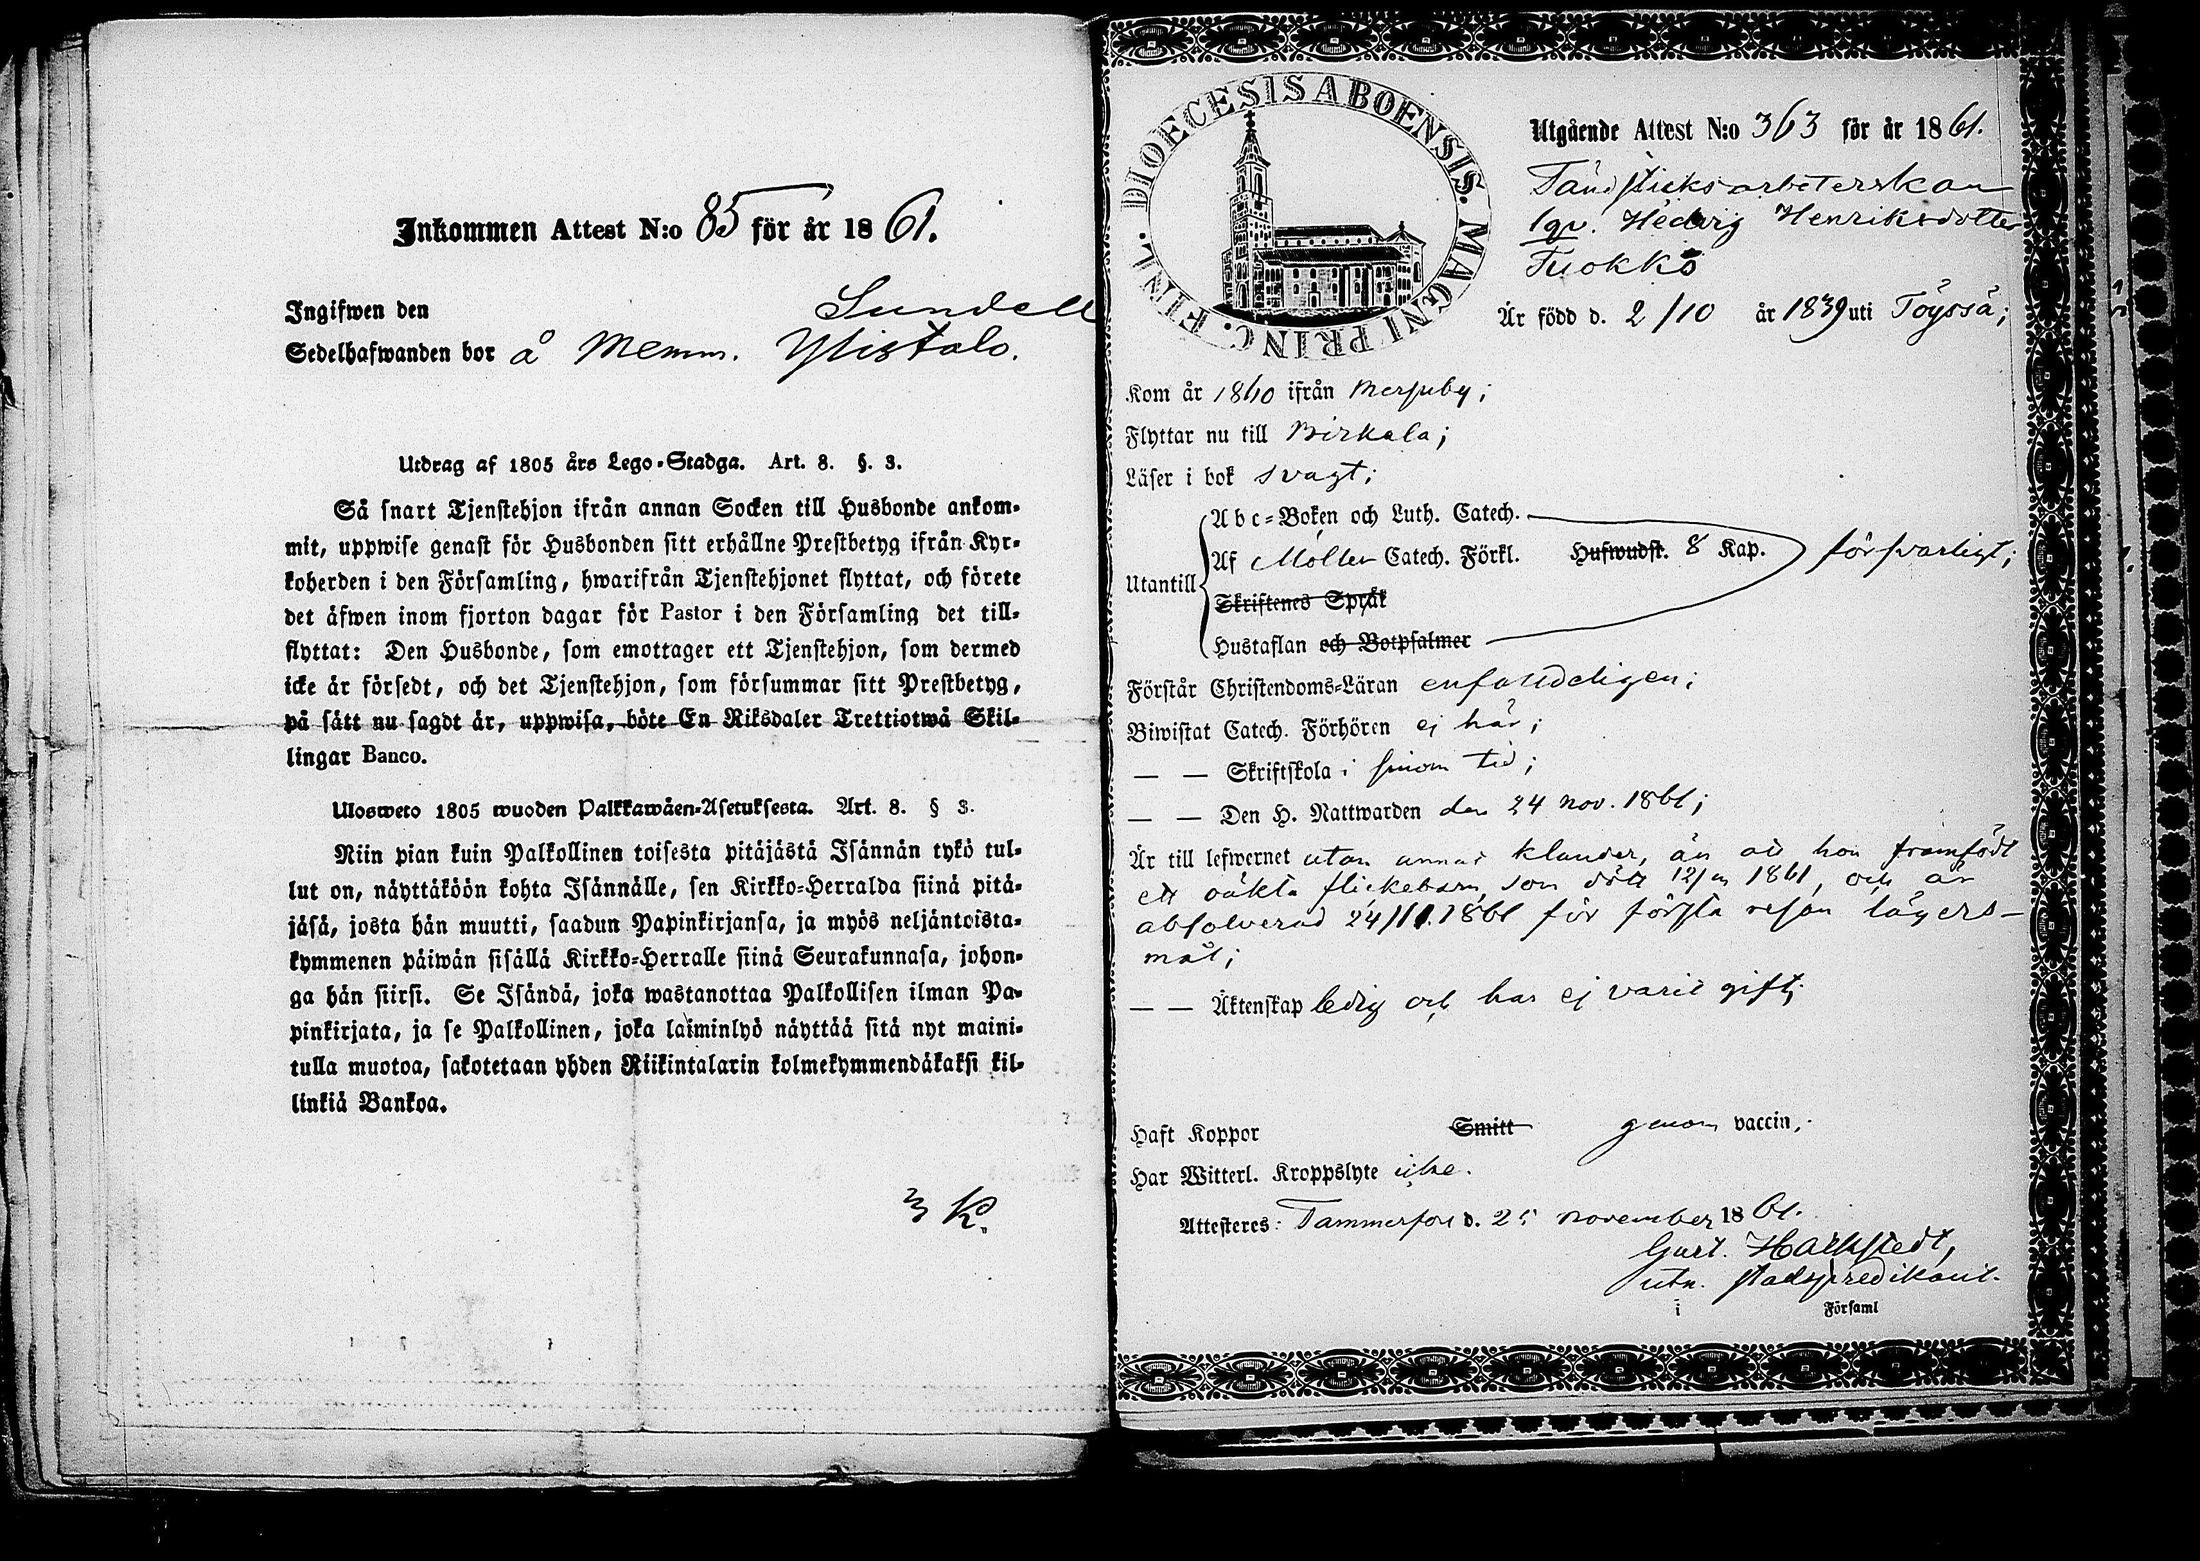 Inkommen Attest N:o 85 för år 1861.
Ingifwen den
Sundell
Sedelhafwanden bor å Memm. Ylistalo.
Utdrag af 1805 års Lego-Stadga. Art. 8. §. 3.
Så snart Tjenstehjon ifrån annan Socken till Husbonde ankom-
mit, uppwise genast för Husbonden sitt erhållne Prestbetyg ifrån Kyr-
koherden i den Församling, hwarifrån Tjenstehjonet flyttat, och förete
det äfwen inom fjorton dagar för Pastor i den Församling det till-
flyttat: Den Husbonde, som emottager ett Tjenstehjon, som dermed
icke är försedt, och det Tjenstehjon, som försummar sitt Prestbetyg,
på sätt nu sagdt är, uppwisa, böte En Riksdaler Trettiotwå Skil-
lingar Banco.
Ulosweto 1805 wuoden Palkkawäen-Asetuksesta. Art. 8. § 3.
Niin pian kuin Palkollinen toisesta pitäjästä Isännän tykö tul-
lut on, näyttäköön kohta Isännälle, sen Kirkko-Herralda siinä pitä-
jäsä, josta hän muutti, saadun Papinkirjansa, ja myös neljäntoista-
kymmenen päiwän sisällä Kirkko-Herralle siinä Seurakunnasa, johon-
ga hän siirsi. Se Isändä, joka wastanottaa Palkollisen ilman Pa-
pinkirjata, ja se Palkollinen, joka laiminlyö näyttää sitä nyt maini-
tulla muotoa, sakotetaan yhden Riikintalarin kolmekymmendäkaksi kil-
linkiä Bankoa.
3 K.
DIOECESIS ABOENSIS. MAGNI PRINC. FINL.
Utgående Attest N:o 363 för år 1861.
Tändsticksarbeterskan
lqv. Hedvig Henriksdotter
Tuokko
Är född d. 2/10 år 1839 uti Töysså;
Kom år 1860 ifrån Messuby;
Flyttar nu till Birkala;
Läser i bok svagt;
Abc-Boken och Luth. Catech.
Utantill Af Möller Catech. Förkl. Hufwudst. 8 Kap. försvarligt;
Skriftenes Språk
Hustaflan och Botpsalmer
Förstår Christendoms-Läran enfalldeligen;
Biwistat Catech. Förhören ej här;
— — Skriftskola i sinom tid;
— — Den H. Nattwarden den 24 nov. 1861;
Är till lefwernet utan annat klander, än att hon framfödt
ett oäkta flickebarn, som dött 12/ 1861, och är
absolverad 24/11.1861 för första resan lägers-
mål;
— — Äktenskap ledig och har ej varit gift;
Haft Koppor Smitt genom vaccin,
Har Witterl. Kroppslyte icke.
Attesteres: Tammerfors d. 25 november 1861.
Gust. Hallstedt,
utn. stadspredikant.
i Församl